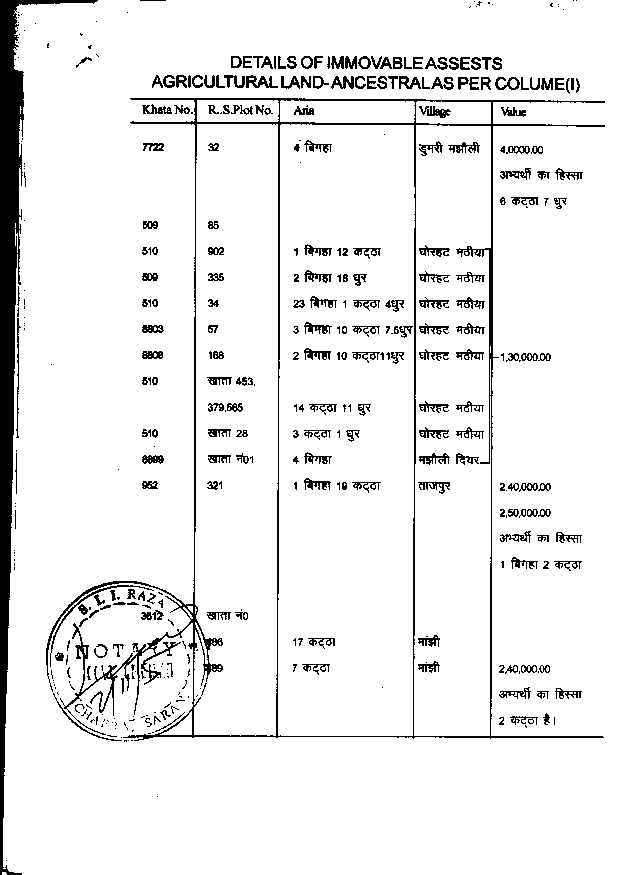 DETAILS OF IMMOVABLE ASSESTS
AGRICULTURAL LAND-ANCESTRAL AS PER COLUME(I)
Khata No. R..S.Plot No. Aria Village Value
7722 32 4 बिगहा डुमरी मझौली 4,0000.00
अभ्यर्थी का हिस्सा
6 कट्ठा 7 धुर
509 85
510 902 1 बिगहा 12 कट्ठा घोरहट मठीया
509 335 2 बिगहा 18 धुर घोरहट मठीया
510 34 23 बिगहा 1 कट्ठा 4धुर घोरहट मठीया
8803 57 3 बिगहा 10 कट्ठा 7.5धुर घोरहट मठीया
8808 168 2 बिगहा 10 कट्ठा11धुर घोरहट मठीया 1,30,000.00
510 खाता 453,
379,565 14 कट्ठा 11 धुर घोरहट मठीया
510 खाता 28 3 कट्ठा 1 धुर घोरहट मठीया
8899 खाता नं01 4 बिगहा मझौली दियर
952 321 1 बिगहा 19 कट्ठा ताजपुर 2,40,000.00
2,50,000.00
अभ्यर्थी का हिस्सा
1 बिगहा 2 कट्ठा
S. I. I. RAZA
3612 खाता नं0
86 17 कट्ठा मांझी
NOTARY
89 7 कट्ठा मांझी 2,40,000.00
अभ्यर्थी का हिस्सा
2 कट्ठा है।
CHAPRA SARAN